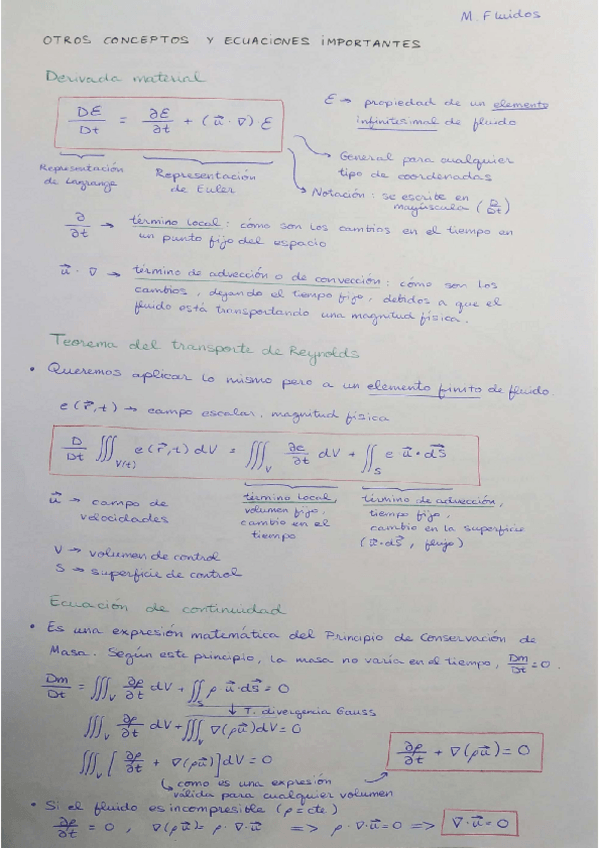 M. Fluidos
OTROS CONCEPTOS Y ECUACIONES IMPORTANTES
Derivada material
DƐ/Dt = ∂Ɛ/∂t + (u⃗ · ∇) Ɛ
Ɛ → propiedad de un elemento
infinitesimal de fluido
→ General para cualquier
tipo de coordenadas
→ Notación: se escribe en
mayúscula (D/Dt)
Representación
de Lagrange
Representación
de Euler
∂/∂t → término local: cómo son los cambios en el tiempo en
un punto fijo del espacio
u⃗ · ∇ → término de advección o de convección: cómo son los
cambios, dejando el tiempo fijo, debidos a que el
fluido está transportando una magnitud física.
Teorema del transporte de Reynolds
• Queremos aplicar lo mismo pero a un elemento finito de fluido.
e(r⃗,t) → campo escalar, magnitud física
D/Dt ∭V(t) e(r⃗,t) dV = ∭V ∂e/∂t dV + ∬S e u⃗·dS⃗
u⃗ → campo de
velocidades
término local,
volumen fijo,
cambio en el
tiempo
término de advección,
tiempo fijo,
cambio en la superficie
(u⃗·dS⃗, flujo)
V → volumen de control
S → superficie de control
Ecuación de continuidad
• Es una expresión matemática del Principio de Conservación de
Masa. Según este principio, la masa no varía en el tiempo, Dm/Dt = 0.
Dm/Dt = ∭V ∂ρ/∂t dV + ∬S ρ u⃗·dS⃗ = 0
↓ T. divergencia Gauss
∭V ∂ρ/∂t dV + ∭V ∇(ρu⃗)dV = 0
∭V [∂ρ/∂t + ∇(ρu⃗)]dV = 0
∂ρ/∂t + ∇(ρu⃗) = 0
↳ como es una expresión
válida para cualquier volumen
• Si el fluido es incompresible (ρ = cte)
∂ρ/∂t = 0 , ∇(ρu⃗) = ρ·∇·u⃗ => ρ·∇·u⃗ = 0 => ∇·u⃗ = 0